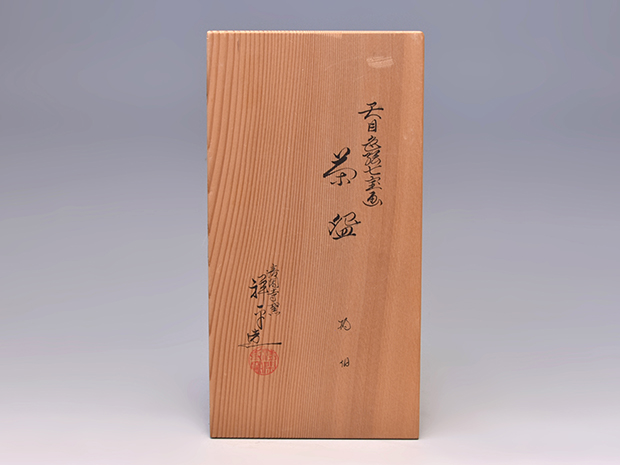 天目色絵七宝画
茶盌
清閑寺窯
祥平造